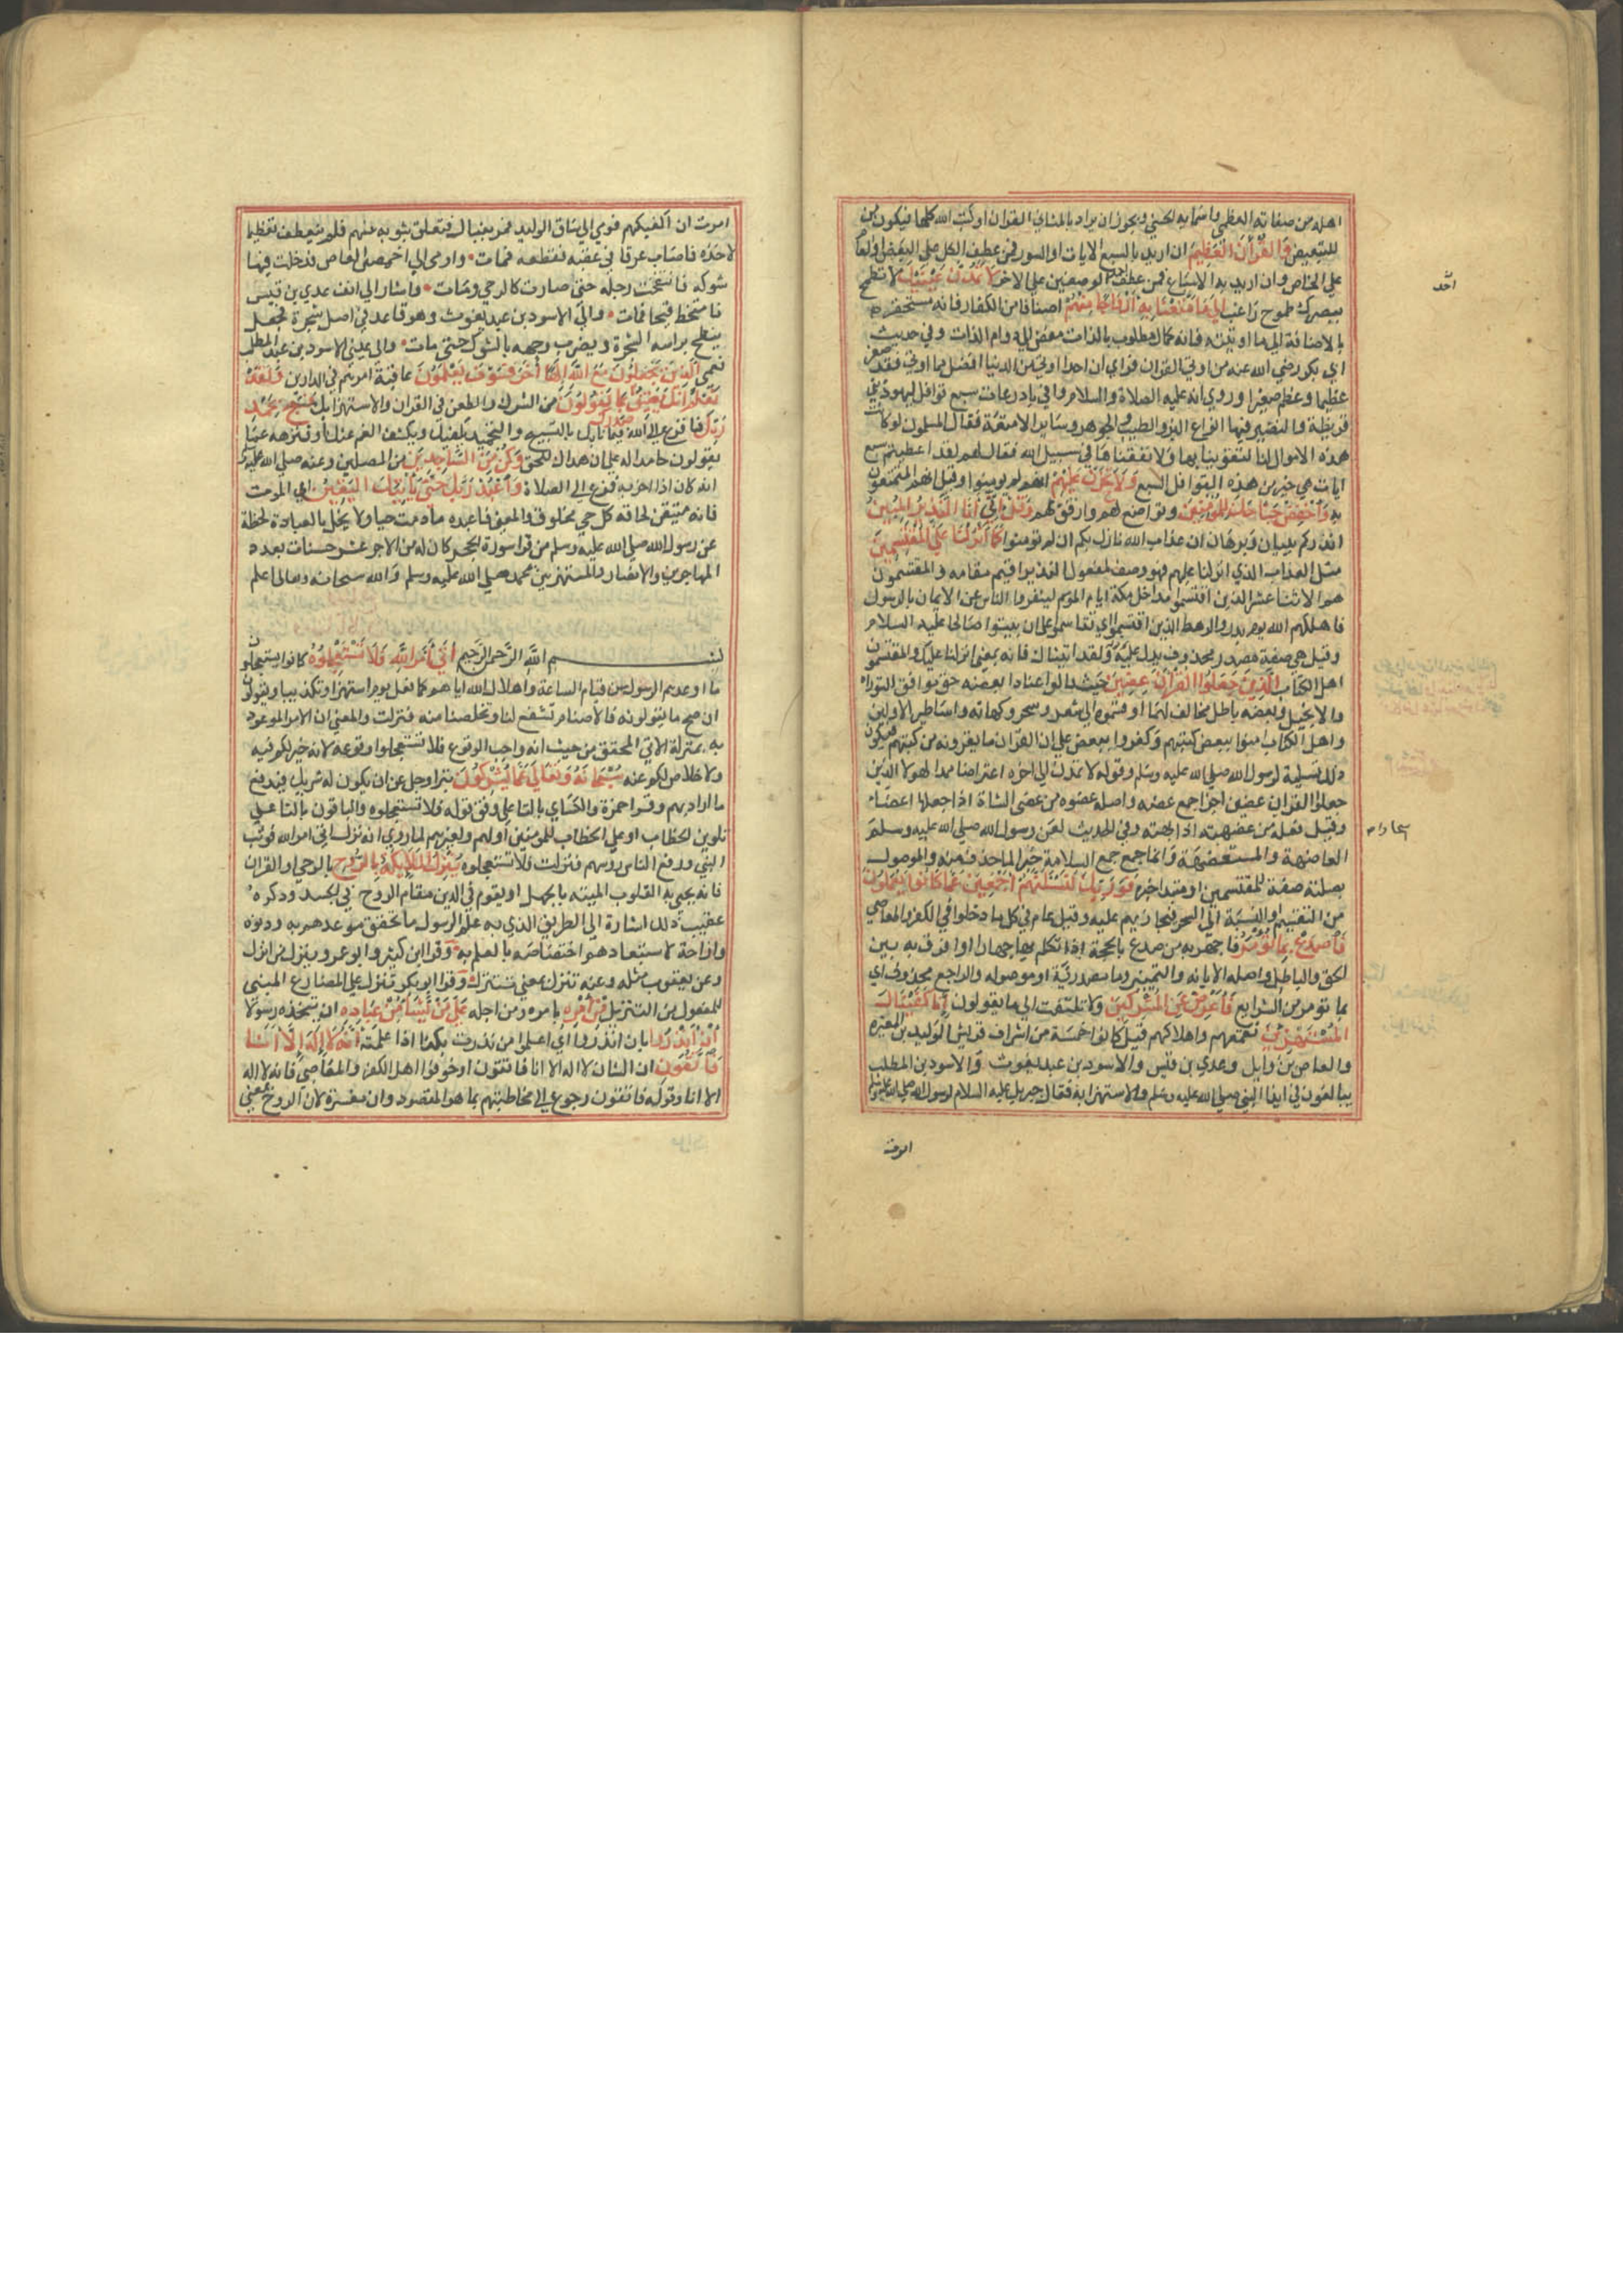 اهله من صفاته العظمي واسمايه الحسني ويجوز ان يراد بالمثاني القران او كتب الله كلها فيكون من
للتبعيض وَالْقُرْآنَ الْعَظِيمَ ان اريد بالسبع الايات او السور فمن عطف الكل علي البعض او العام
علي الخاص وان اريد به الاسباع فمن عطف احد الوصفين علي الاخر لَا تَمُدَّنَّ عَيْنَيْكَ لا تطمح
ببصرك طموح راغب إِلَى مَا مَتَّعْنَا بِهِ أَزْوَاجًا مِنْهُمْ اصنافا من الكفار فانه مستحقر
بالاضافة الي ما اوتيته فانه كمال مطلوب بالذات مفض الي دوام اللذات وفي حديث
ابي بكر رضي الله عنه من اوتي القران فراي ان احدا اوتي من الدنيا افضل مما اوتي فقد صغر
عظيما وعظم صغيرا وروي انه عليه الصلاة والسلام وافي باذرعات سبع قوافل ليهود بني
قريظة والنضير فيها انواع البز والطيب والجوهر وساير الامتعة فقال المسلمون لو كانت
هذه الاموال لنا لتقوينا بها ولانفقناها في سبيل الله فقال لهم لقد اعطيتم سبع
ايات هي خير من هذه القوافل السبع وَلَا تَحْزَنْ عَلَيْهِمْ انهم لم يومنوا وقيل انهم المتمتعون
به وَاخْفِضْ جَنَاحَكَ لِلْمُؤْمِنِينَ وتواضع لهم وارفق بهم وَقُلْ إِنِّي أَنَا النَّذِيرُ الْمُبِينُ
انذركم ببيان وبرهان ان عذاب الله نازل بكم ان لم تومنوا كَمَا أَنْزَلْنَا عَلَى الْمُقْتَسِمِينَ
مثل العذاب الذي انزلنا عليهم فهو وصف لمفعول النذير اقيم مقامه والمقتسمون
هم الاثنا عشر الذين اقتسموا مداخل مكة ايام الموسم لينفروا الناس عن الايمان بالرسول
فاهلكهم الله يوم بدر والرهط الذين اقتسموا اي تقاسموا علي ان يبيتوا صالحا عليه السلام
وقيل هي صفة مصدر محذوف يدل عليه ولقد اتيناك فانه بمعني انزلنا عليك والمقتسمون
اهل الكتاب الَّذِينَ جَعَلُوا الْقُرْآنَ عِضِينَ حيث قالوا عنادا بعضه حق موافق التوراة
والانجيل وبعضه باطل مخالف لهما او قسموه الي شعر وسحر وكهانة واساطير الاولين
واهل الكتاب امنوا ببعض كتبهم وكفروا ببعض علي ان القران ما يقرونه من كتبهم فيكون
ذلك تسلية لرسول الله صلي الله عليه وسلم وقوله لا تمدن الي اخره اعتراضا ممدا لها الذين
جعلوا القران عضين اجزا جمع عضه واصله عضوه من عضي الشاة اذا جعلها اعضاء
وقيل فعلة من عضهته اذا بهته وفي الحديث لعن رسول الله صلي الله عليه وسلم
العاضهة والمستعضهة وانما جمع جمع السلامة جبرا لما حذف منه والموصول
بصلته صفة للمقتسمين او مبتدا خبره فَوَرَبِّكَ لَنَسْأَلَنَّهُمْ أَجْمَعِينَ عَمَّا كَانُوا يَعْمَلُونَ
من التقسيم او النسبة الي السحر فيجازيهم عليه وقيل عام في كل ما دخلوا في الكفر والمعاصي
فَاصْدَعْ بِمَا تُؤْمَرُ فاجهر به من صدع بالحجة اذا تكلم بها جهارا او افرق به بين
الحق والباطل واصله الابانة والتمييز وما مصدرية او موصولة والراجع محذوف اي
بما تومر من الشرايع وَأَعْرِضْ عَنِ الْمُشْرِكِينَ ولا تلتفت الي ما يقولون إِنَّا كَفَيْنَاكَ
الْمُسْتَهْزِئِينَ بقمعهم واهلاكهم قيل كانوا خمسة من اشراف قريش الوليد بن المغيرة
والعاص بن وايل وعدي بن قيس والاسود بن عبد يغوث والاسود بن المطلب
يبالغون في ايذا النبي صلي الله عليه وسلم والاستهزا به فقال جبريل عليه السلام لرسول الله صلي الله عليه وسلم
امرت
امرت ان اكفيكهم فومي الي ساق الوليد فمر بنبال فتعلق بثوبه سهم فلم ينعطف تعظيما
لاخذه فاصاب عرقا في عقبه فقطعه فمات وارمي الي اخمص العاص فدخلت فيها
شوكة فانتفخت رجله حتي صارت كالرحي ومات واشار الي انف عدي بن قيس
فامتخط قيحا فمات والي الاسود بن عبد يغوث وهو قاعد في اصل شجرة فجعل
ينطح براسه الشجرة ويضرب وجهه بالشوك حتي مات والي عيني الاسود بن عبد المطلب
فعمي الَّذِينَ يَجْعَلُونَ مَعَ اللَّهِ إِلَهًا آخَرَ فَسَوْفَ يَعْلَمُونَ عاقبة امرهم في الدارين وَلَقَدْ
نَعْلَمُ أَنَّكَ يَضِيقُ صدرك بِمَا يَقُولُونَ من الشرك والطعن في القران والاستهزا بك فَسَبِّحْ بِحَمْدِ
رَبِّكَ فافزع الي الله فيما نابك بالتسبيح والتحميد يكفيك ويكشف الغم عنك او فنزهه عما
يقولون حامدا له علي ان هداك للحق وَكُنْ مِنَ السَّاجِدِينَ من المصلين وعنه صلي الله عليه وسلم
انه كان اذا حزبه فزع الي الصلاة وَاعْبُدْ رَبَّكَ حَتَّى يَأْتِيَكَ الْيَقِينُ اي الموت
فانه متيقن لحاقه كل حي مخلوق والمعني فاعبده ما دمت حيا ولا تخل بالعبادة لحظة
عن رسول الله صلي الله عليه وسلم من قرا سورة الحجر كان له من الاجر عشر حسنات بعدد
المهاجرين والانصار والمستهزين بمحمد صلي الله عليه وسلم والله سبحانه وتعالي اعلم
بسم الله الرحمن الرحيم أَتَى أَمْرُ اللَّهِ فَلَا تَسْتَعْجِلُوهُ كانوا يستعجلون
ما اوعدهم الرسول من قيام الساعة واهلاك الله اياهم كما فعل يوم بدر استهزا وتكذيبا ويقولون
ان صح ما يقولونه فالاصنام تشفع لنا وتخلصنا منه فنزلت والمعني ان الامر الموعود
به بمنزلة الاتي المحقق من حيث انه واجب الوقوع فلا تستعجلوا وقوعه لانه خير لكم فيه
ولا خلاص لكم عنه سُبْحَانَهُ وَتَعَالَى عَمَّا يُشْرِكُونَ تبرا وجل عن ان يكون له شريك فيدفع
ما اراد بهم وقرا حمزة والكساي بالتا علي وفق قوله فلا تستعجلوه والباقون باليا علي
تلوين الخطاب او علي الخطاب للمومنين او لهم ولغيرهم لما روي انه نزلت اتي امر الله فوثب
النبي ورفع الناس روسهم فنزلت فلا تستعجلوه يُنَزِّلُ الْمَلَائِكَةَ بِالرُّوحِ بالوحي او القران
فانه يحيي به القلوب الميتة بالجهل او يقوم في الدين مقام الروح في الجسد وذكره
عقيب ذلك اشارة الي الطريق الذي به علم الرسول ما تحقق موعدهم به ودنوه
وازاحة لاستبعادهم اختصاصه بالعلم به وقرا ابن كثير وابو عمرو ينزل من انزل
وعن يعقوب مثله وعنه تنزل بمعني تتنزل وقرا ابو بكر تنزل علي المضارع المبني
للمفعول من التنزيل مِنْ أَمْرِهِ بامره ومن اجله عَلَى مَنْ يَشَاءُ مِنْ عِبَادِهِ ان يتخذه رسولا
أَنْ أَنْذِرُوا بان انذروا اي اعلموا من نذرت بكذا اذا علمته أَنَّهُ لَا إِلَهَ إِلَّا أَنَا
فَاتَّقُونِ ان الشان لا اله الا انا فاتقون او خوفوا اهل الكفر والمعاصي فانه لا اله
الا انا وقوله فاتقون رجوع الي مخاطبتهم بما هو المقصود وان مفسرة لان الروح بمعني